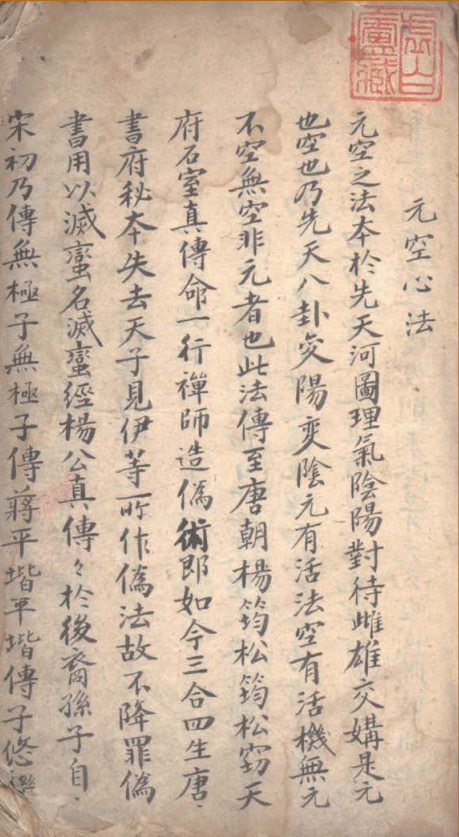 長白
盧藏
元空心法
元空之法本於先天河圖理氣陰陽對待雌雄交媾是元
也空也乃先天八卦交陽变陰元有活法空有活機無元
不空無空非元者也此法傳至唐朝楊筠松筠松窃天
府石室真傳命一行禪師造偽術即如今三合四生唐
書府秘本失去天子見伊等所作偽法故不降罪偽
書用以滅蛮名滅蛮經楊公真傳々於後裔孫子自
宋初乃傳無極子無極子傳蔣平堦平堦傳子悠